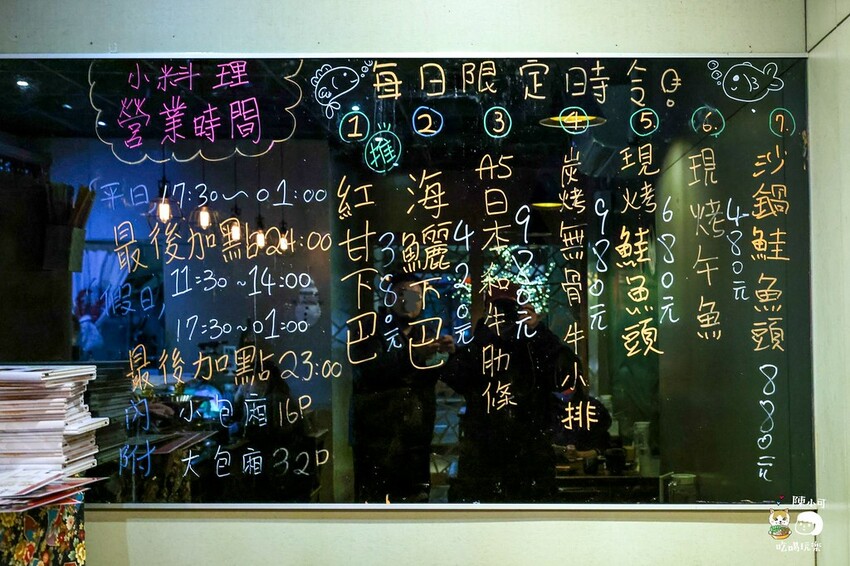 小料理
營業時間
平日 17:30～01:00
最後加點24:00
假日 11:30~14:00
17:30~01:00
最後加點23:00
內 小包廂 16P
附 大包廂 32P
每日限定時令
1 推 紅甘下巴 380元
2 海鱺下巴 420元
3 A5日本和牛肋條 980元
4. 炭烤無骨牛小排 980元
5. 現烤鮭魚頭 680元
6. 現烤午魚 480元
7. 沙鍋鮭魚頭 880元
陳小可
吃喝玩樂